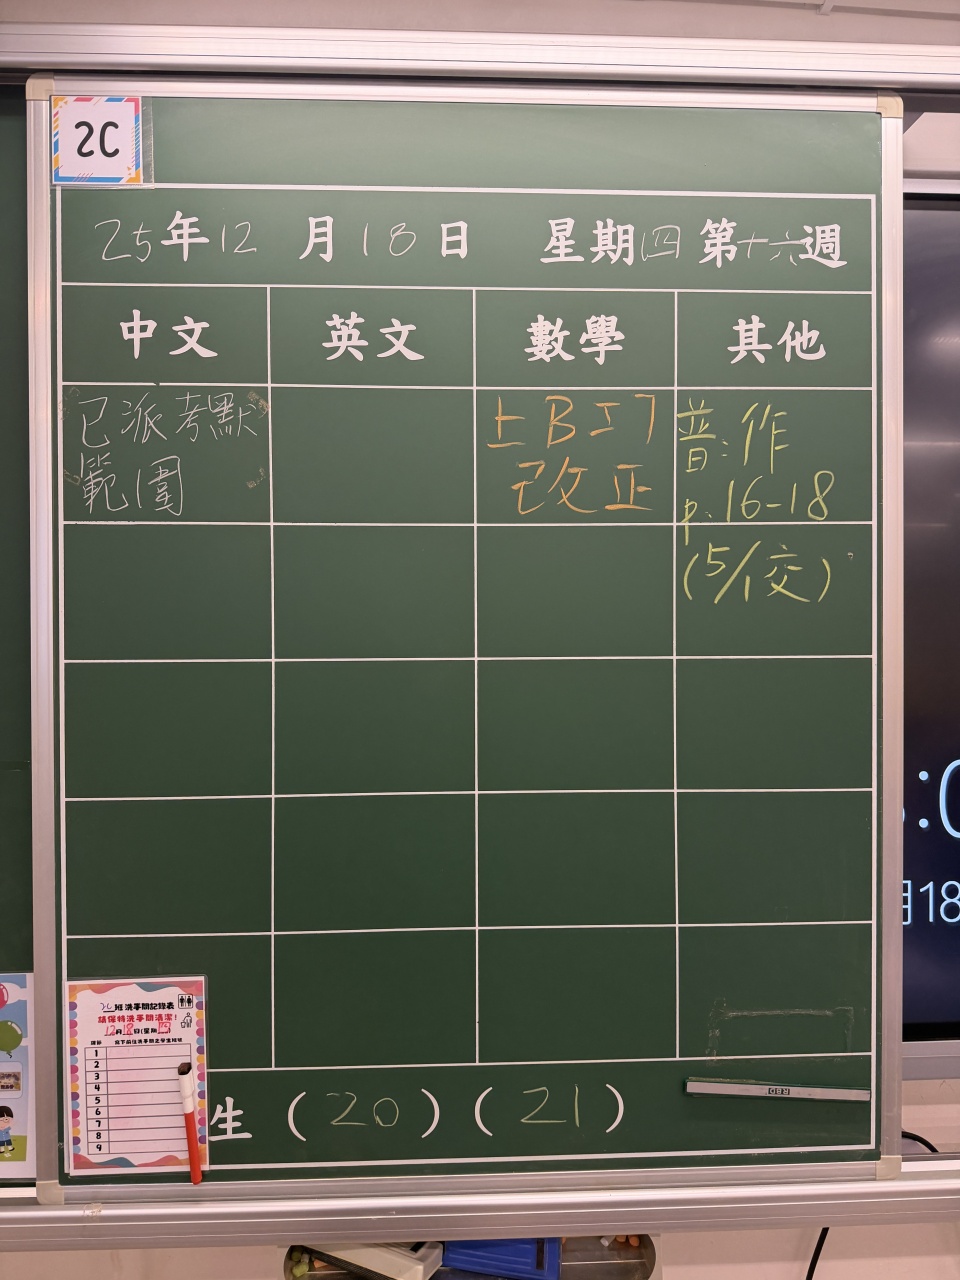 2C
25年12月18日 星期四 第十六週
中文 英文 數學 其他
已派考默
範圍
上B工7
改正
普:作
p.16-18
(5/1交)
2C班洗手間記錄表
請保持洗手間清潔!
12月18日(星期四)
寫下前往洗手間之學生班號
1
2
3
4
5
6
7
8
9
生 (20) (21)
:0
月18